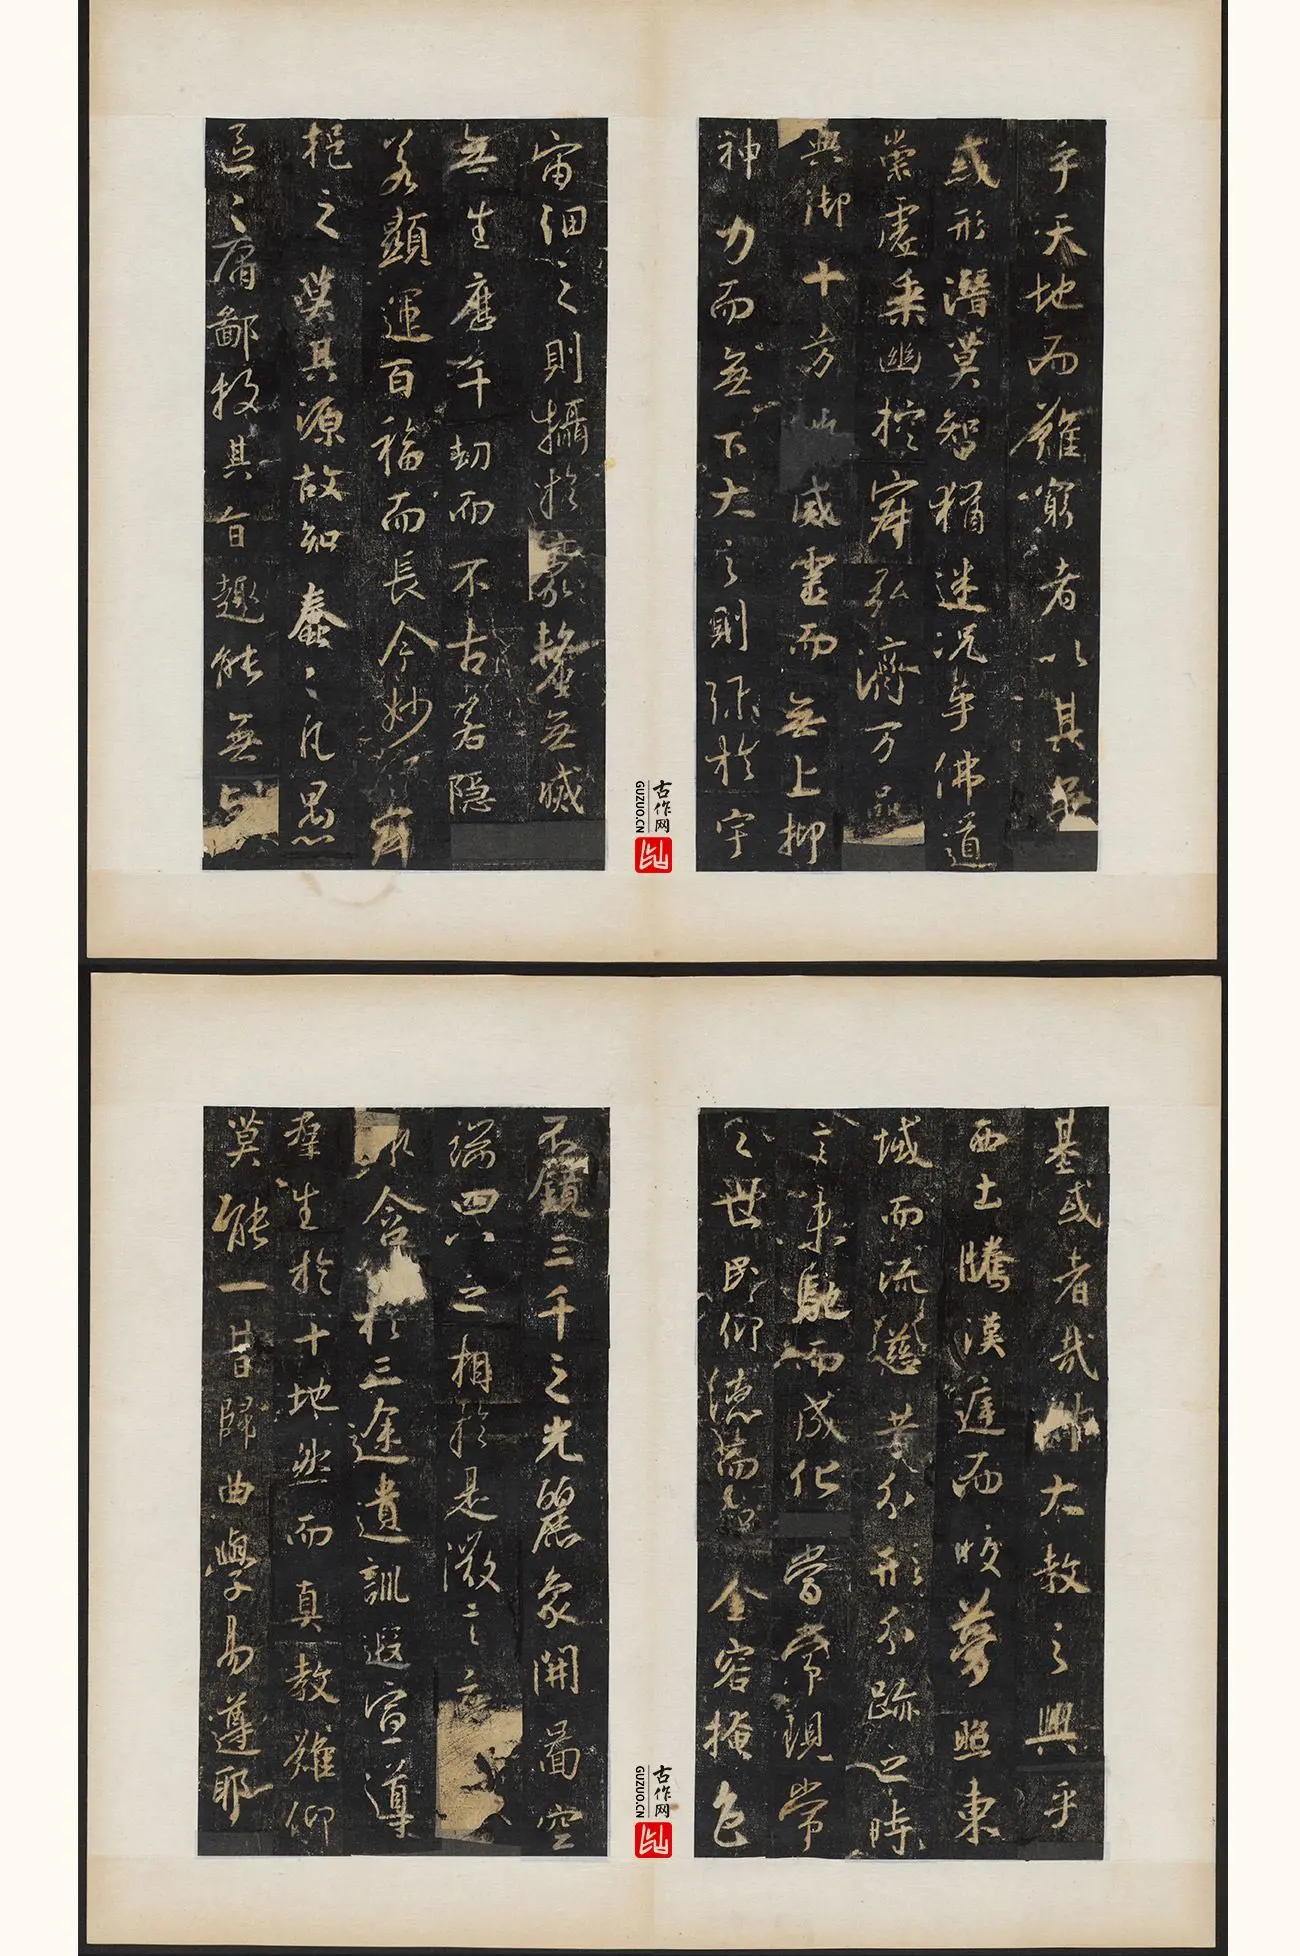 乎天地而難窮者以其無
或形潛莫智猶迷況乎佛道
崇虛乘幽控寂弘濟万品
典御十方 威靈而無上抑
神力而無下大之則彌於宇
宙細之則攝於豪釐無滅
無生歷千劫而不古若隱
若顯運百福而長今妙道
挹之莫其源故知蠢〻凡愚
區〻庸鄙投其旨趣能無
古作网
GUZUO.CN
基或者哉 大教之興乎
西土騰漢庭而皎夢照東
域而流慈昔分形分跡之時
言未馳而成化當常現常
之世民仰德而知
金容掩色
不鏡三千之光麗象開圖空
端四八之相於是微言廣
含 於三途遺訓遐宣導
羣生於十地然而真教難仰
莫能一旨歸曲學易遵耶
古作网
GUZUO.CN